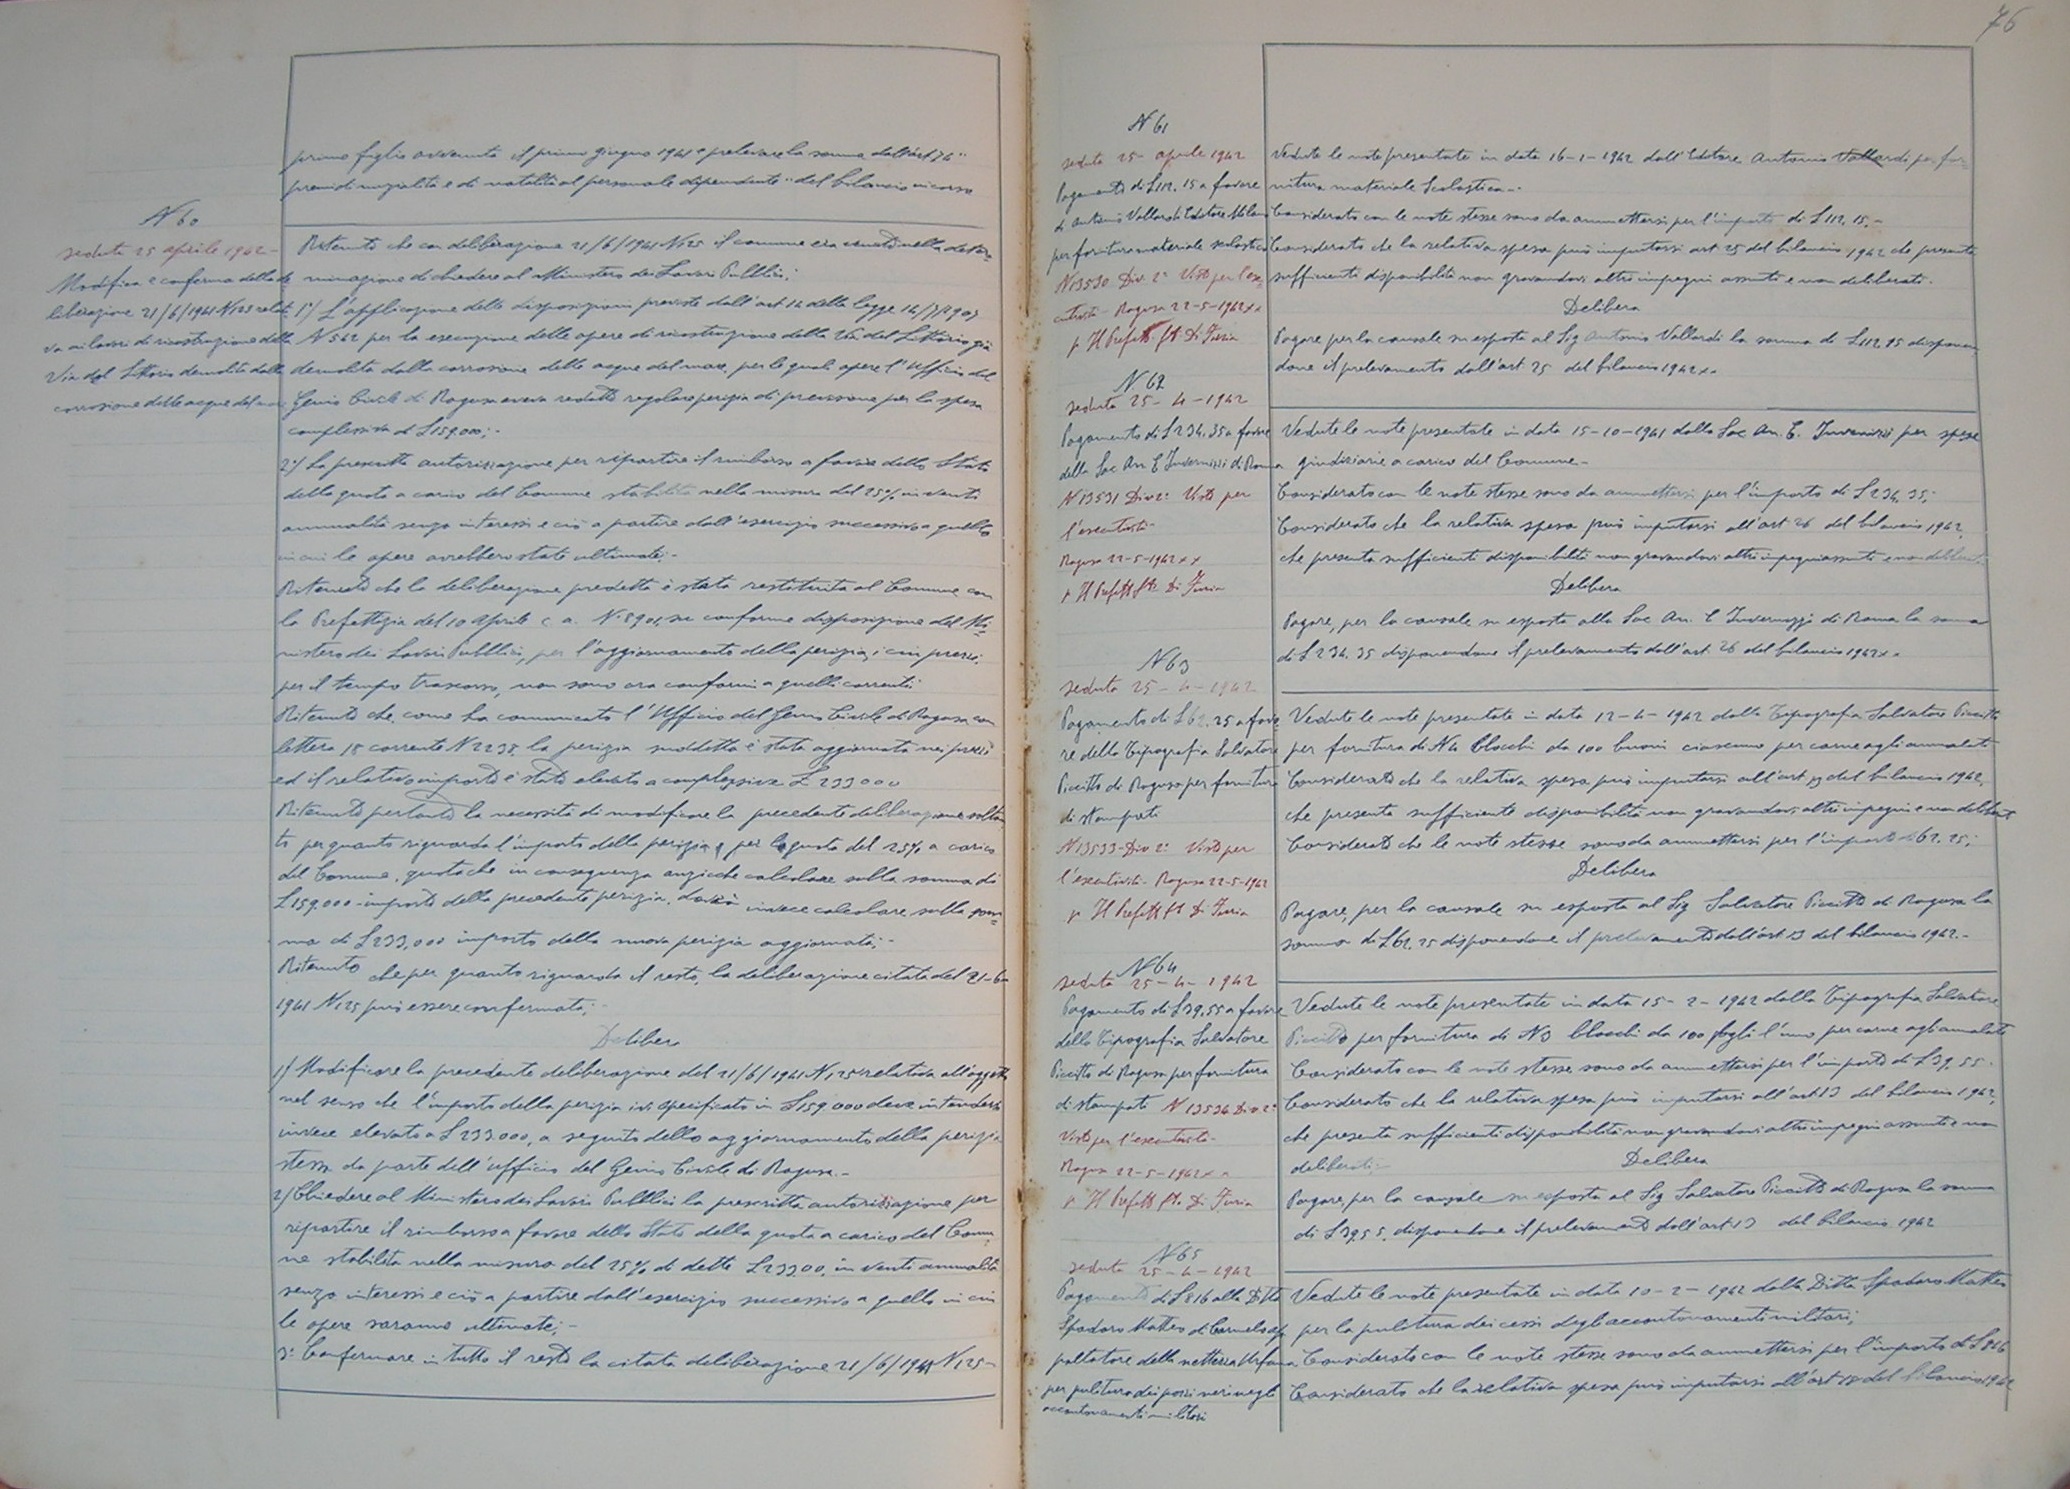 76
primo figlio avvenuta il primo giugno 1941 e prelevare la somma dall'art 76 "
premi di nuzialità e di natalità al personale dipendente" del bilancio in corso
N 60
seduta 25 aprile 1942-
Modifica e conferma della de
liberazione 21/6/1941 N 125 relati
va ai lavori di ricostruzione della
Via del Littorio demolita dalla
corrosione delle acque del mare
Ritenuto che con deliberazione 21/6/1941 N 125 il comune era venuto nella deter-
minazione di chiedere al Ministero dei Lavori Pubblici:
1°/ L'applicazione delle disposizioni previste dall'art 14 della legge 14/7/1907
N 542 per la esecuzione delle opere di ricostruzione della Via del Littorio già
demolita dalla corrosione delle acque del mare, per le quali opere l'Ufficio del
Genio Civile di Ragusa aveva redatto regolare perizia di previsione per la spesa
complessiva di £ 159.000;-
2°/ La prescritta autorizzazione per ripartire il rimborso a favore dello Stato
della quota a carico del Comune stabilita nella misura del 25% in venti
annualità senza interessi e ciò a partire dall'esercizio successivo a quello
in cui le opere sarebbero state ultimate;-
Ritenuto che la deliberazione predetta è stata restituita al Comune con
la Prefettizia del 10 aprile c. a. N. 8901, su conforme disposizione del Mi-
nistero dei Lavori Pubblici, per l'aggiornamento della perizia, i cui prezzi,
per il tempo trascorso, non sono ora conformi a quelli correnti;
Ritenuto che, come ha comunicato l'Ufficio del Genio Civile di Ragusa con
lettera 18 corrente N 2238, la perizia suddetta è stata aggiornata nei prezzi
ed il relativo importo è stato elevato a complessive £ 233000
Ritenuto pertanto la necessità di modificare la precedente deliberazione soltan
to per quanto riguarda l'importo della perizia e per la quota del 25% a carico
del Comune, quota che in conseguenza anzicche calcolare sulla somma di
£ 159.000 - importo della precedente perizia, dovrà invece calcolare sulla som-
ma di £ 233,000 importo della nuova perizia aggiornata;-
Ritenuto che per quanto riguarda il resto, la deliberazione citata del 21-6-
1941 N 125 può essere confermata;-
Delibera
1/ Modificare la precedente deliberazione del 21/6/1941 N 125 relativa all'oggetto
nel senso che l'importo della perizia ivi specificato in £ 159.000 deve intendersi
invece elevato a £ 233.000, a seguito dello aggiornamento della perizia
stessa da parte dell'ufficio del Genio Civile di Ragusa.-
2/ Chiedere al Ministero dei Lavori Pubblici la prescritta autorizzazione per
ripartire il rimborso a favore dello Stato della quota a carico del Comu-
ne stabilita nella misura del 25% di dette £ 23300, in venti annualità
senza interessi e ciò a partire dall'esercizio successivo a quello in cui
le opere saranno ultimate;-
3° Confermare in tutto il resto la citata deliberazione 21/6/1941 N 125-
N 61
seduta 25- aprile 1942
Pagamento di £ 112.15 a favore
di Antonio Vallardi Editore Milano
per fornitura materiale scolastico
N 13530 Div. 2ª Visto per l'ese-
cutività - Ragusa 22-5-1942 xx
p Il Prefetto fto Di Furia
Vedute le note presentate in data 16-1-1942 dall'Editore Antonio Vallardi per for-
nitura materiale Scolastico.-
Considerato con le note stesse sono da ammettersi per l'importo di £ 112.15.-
Considerato che la relativa spesa può imputarsi art 25 del bilancio 1942 che presenta
sufficienti disponibilità non gravandovi altri impegni assunti e non deliberati.
Delibera
Pagare per la causale su esposta al Sig Antonio Vallardi la somma di £ 112.15 disponen-
done il prelevamento dall'art 25 del bilancio 1942 xx
N 62
seduta 25-4-1942
Pagamento di £ 234.35 a favore
della Soc An E Invernizzi di Roma
N 13531 Div 2ª Visto per
l'esecutività-
Ragusa 22-5-1942 xx
p Il Prefetto fto Di Furia
Vedute le note presentate in data 15-10-1941 dalla Soc An. E. Invernizzi per spese
giudiziarie a carico del Comune.-
Considerato con le note stesse sono da ammettersi per l'importo di £ 234.35;
Considerato che la relativa spesa può imputarsi all'art 26 del bilancio 1942,
che presenta sufficienti disponibilità non gravandovi altri impegni assunti e non deliberati.
Delibera
Pagare, per la causale su esposta alla Soc An. E Invernizzi di Roma la somma
di £ 234.35 disponendone il prelevamento dall'art. 26 del bilancio 1942 x.
N 63
seduta 25-4-1942
Pagamento di £ 62.25 a favo
re della Tipografia Salvatore
Piccitto di Ragusa per fornitura
di stampati
N 13533-Div 2ª Visto per
l'esecutività- Ragusa 22-5-1942
p Il Prefetto fto Di Furia
Vedute le note presentate in data 12-4-1942 dalla Tipografia Salvatore Piccitto
per fornitura di N 4 blocchi da 100 buoni ciascuno per carne agli ammalati
Considerato che la relativa spesa può imputarsi all'art 13 del bilancio 1942,
che presenta sufficiente disponibilità non gravandovi altri impegni e non deliberati
Considerato che le note stesse sono da ammettersi per l'importo di 62.25;
Delibera
Pagare, per la causale su esposta al Sig Salvatore Piccitto di Ragusa la
somma di £ 62.25 disponendone il prelevamento dall'art 13 del bilancio 1942.-
N 64
seduta 25-4-1942
Pagamento di £ 39.55 a favore
della Tipografia Salvatore
Piccitto di Ragusa per fornitura
di stampati N 13534 Div 2ª
Visto per l'esecutività-
Ragusa 22-5-1942 xx
p Il Prefetto fto Di Furia
Vedute le note presentate in data 15-2-1942 dalla Tipografia Salvatore
Piccitto per fornitura di N 3 blocchi da 100 fogli l'uno per carne agli ammalati
Considerato con le note stesse sono da ammettersi per l'importo di £ 39.55.
Considerato che la relativa spesa può imputarsi all'art 13 del bilancio 1942,
che presenta sufficienti disponibilità non gravandovi altri impegni assunti e non
deliberati- Delibera
Pagare, per la causale su esposta al Sig Salvatore Piccitto di Ragusa la somma
di £ 39.55, disponendone il prelevamento dall'art 13 del bilancio 1942
N 65
seduta 25-4-1942
Pagamento di £ 816 alla Ditta
Spadaro Matteo di Carmelo ap
paltatore della nettezza Urbana
per pulitura dei pozzi neri negli
accantonamenti militari
Vedute le note presentate in data 10-2-1942 dalla Ditta Spadaro Matteo
per la pulitura dei cessi degli accantonamenti militari;
Considerato con le note stesse sono da ammettersi per l'importo di £ 816
Considerato che la relativa spesa può imputarsi all'art 18 del bilancio 1942